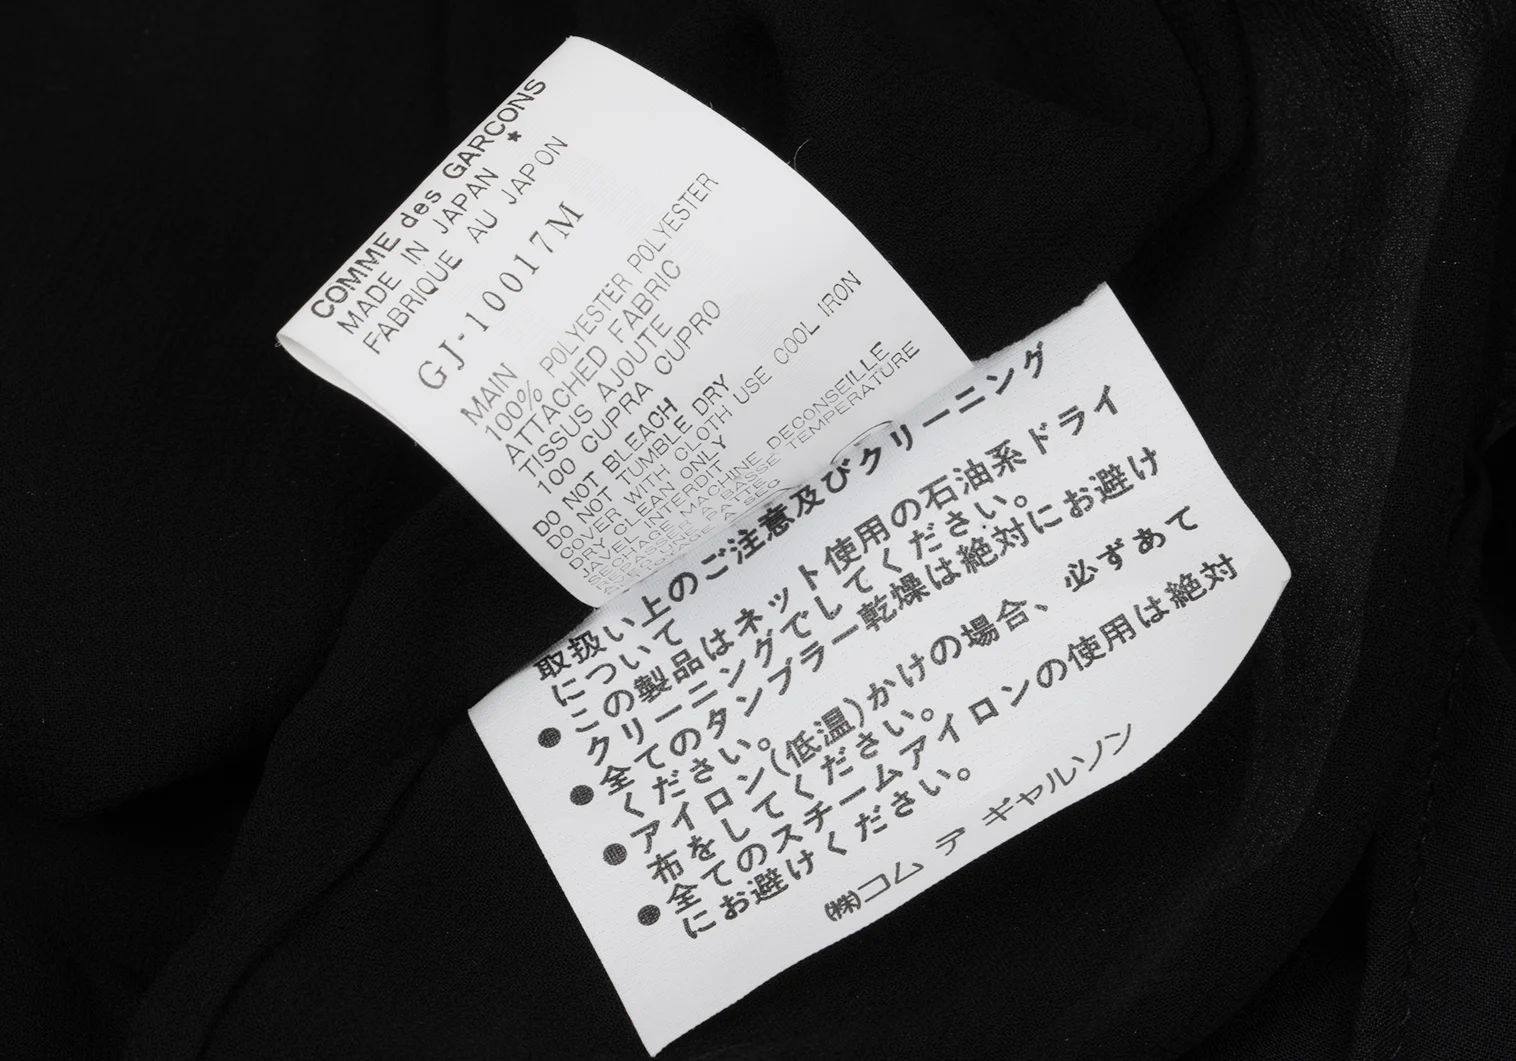 COMME des GARCONS
MADE IN JAPAN ★
FABRIQUE AU JAPON
GJ-10017M
MAIN
100% POLYESTER POLYESTER
ATTACHED FABRIC
TISSUS AJOUTE
100 CUPRA CUPRO
DO NOT BLEACH
DO NOT TUMBLE DRY
COVER WITH CLOTH USE COOL IRON
DRY CLEAN ONLY
JAVEL INTERDIT
SECHAGE MACHINE DECONSEILLE
REPASSER A BASSE TEMPERATURE
A SEC
取扱い上のご注意及びクリーニング
について
●この製品はネット使用の石油系ドライ
クリーニングでしてください。
●全てのタンブラー乾燥は絶対にお避け
ください。
●アイロン(低温)かけの場合、必ずあて
布をしてください。
●全てのスチームアイロンの使用は絶対
にお避けください。
㈱コム デ ギャルソン